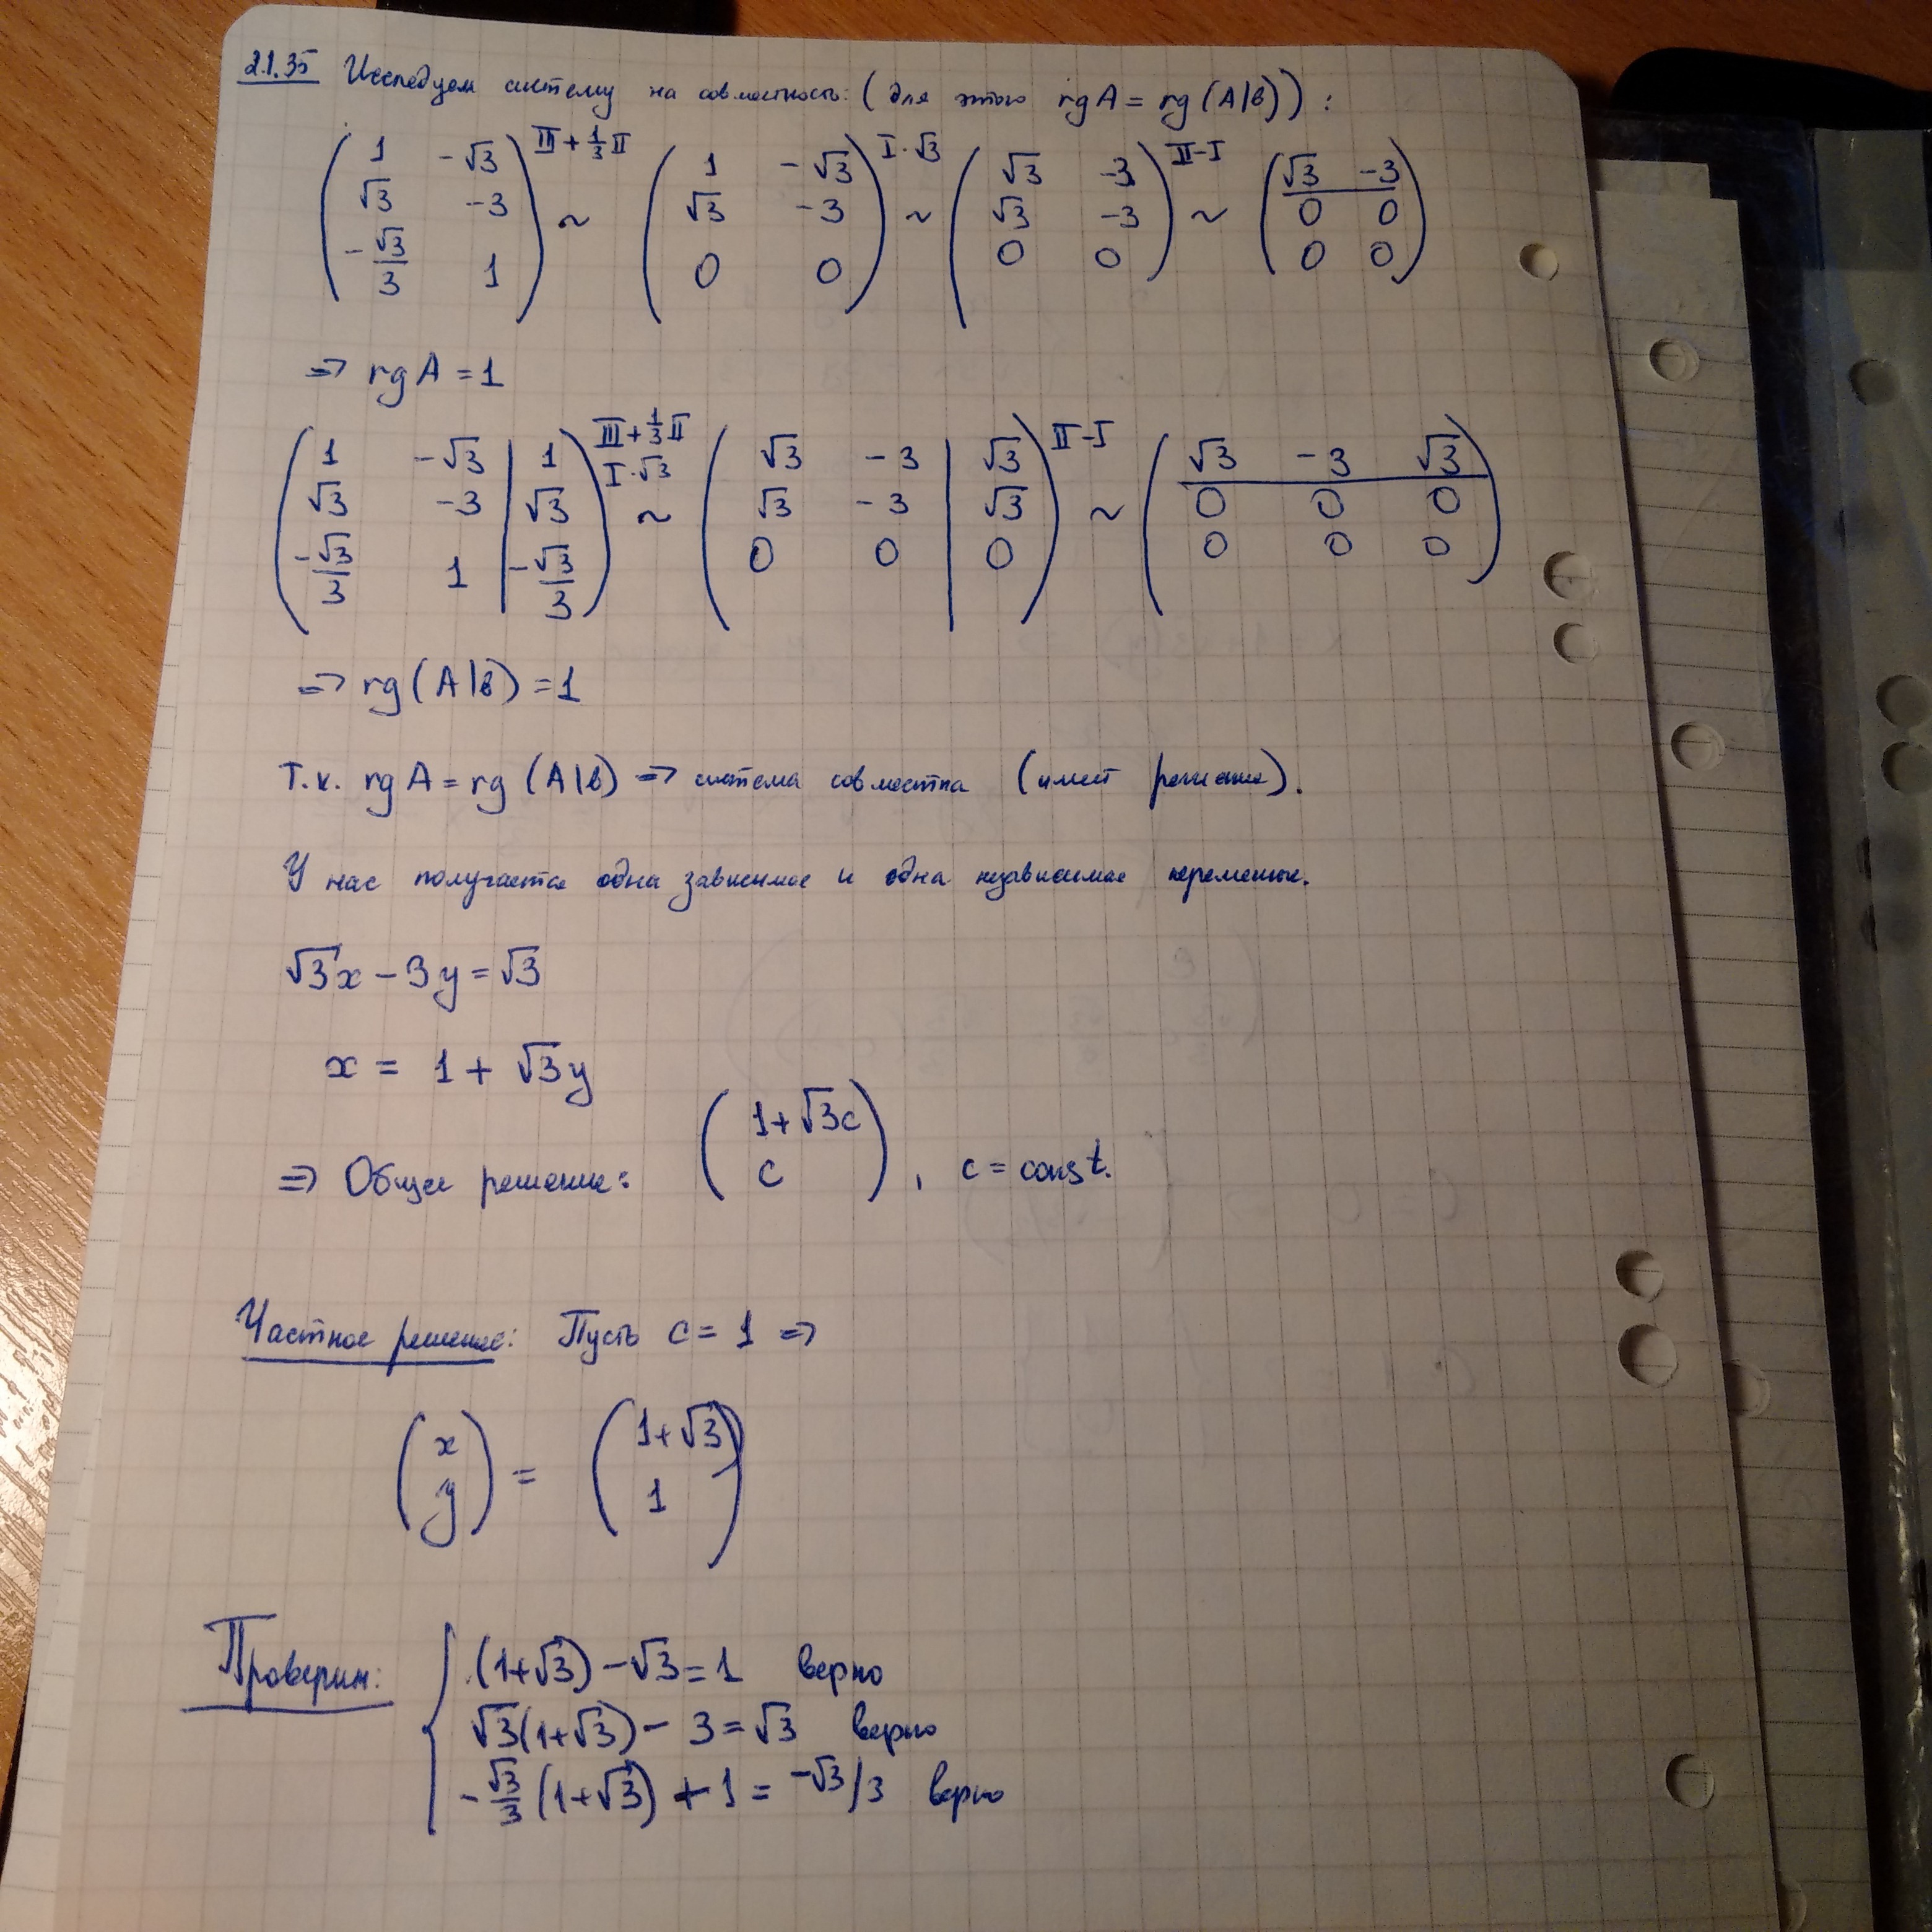 2.1.35 Исследуем систему на совместность: (для этого rg A = rg (A|b)) :
( 1 -√3 ; √3 -3 ; -√3/3 1 ) III + 1/3 II ~ ( 1 -√3 ; √3 -3 ; 0 0 ) I · √3 ~ ( √3 -3 ; √3 -3 ; 0 0 ) II - I ~ ( √3 -3 ; 0 0 ; 0 0 )
=> rg A = 1
( 1 -√3 | 1 ; √3 -3 | √3 ; -√3/3 1 | -√3/3 ) III + 1/3 II I · √3 ~ ( √3 -3 | √3 ; √3 -3 | √3 ; 0 0 | 0 ) II - I ~ ( √3 -3 √3 ; 0 0 0 ; 0 0 0 )
=> rg (A|b) = 1
Т.к. rg A = rg (A|b) => система совместна (имеет решение).
У нас получается одна зависимая и одна независимая переменные.
√3x - 3y = √3
x = 1 + √3y
=> Общее решение: ( 1+√3c ; c ), c = const.
Частное решение: Пусть c = 1 =>
( x ; y ) = ( 1+√3 ; 1 )
Проверим: { (1+√3) - √3 = 1 верно
√3(1+√3) - 3 = √3 верно
-√3/3 (1+√3) + 1 = -√3/3 верно